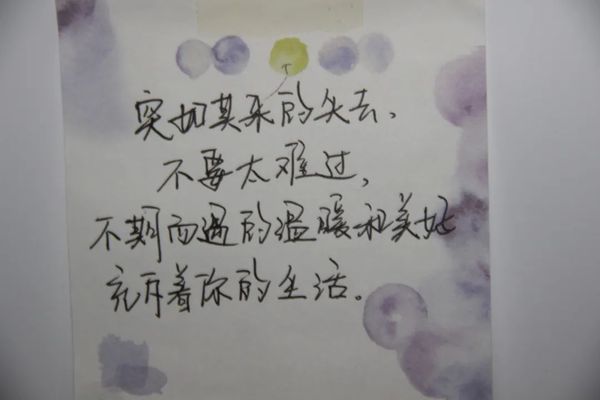 突如其来的失去,
不要太难过,
不期而遇的温暖和美好
充斥着你的生活。